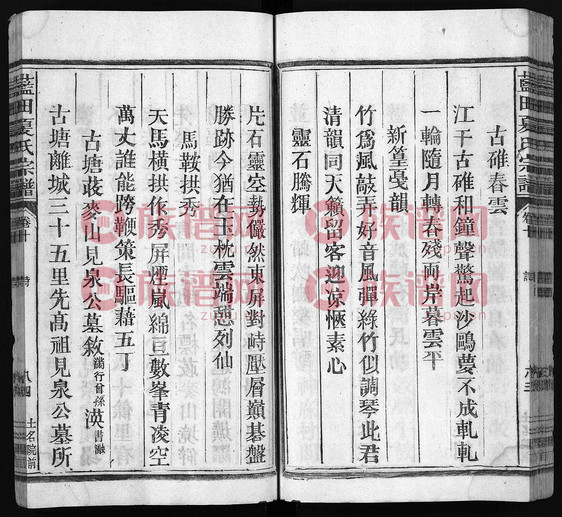 古碓春雲
江干古碓和鐘聲驚起沙鷗夢不成軋軋
一輪隨月轉春殘兩岸暮雲平
新篁戛韻
竹爲風敲弄好音風彈綠竹似調琴此君
清韻同天籟留客迎凉愜素心
靈石騰輝
片石靈空勢儼然東屏對峙壓層巔碁盤
勝跡今猶在玉枕雲端憩列仙
馬鞍拱秀
天馬橫拱作秀屏煙嵐綿亘數峯青凌空
萬丈誰能跨鞭策長驅藉五丁
古塘莊麥山見泉公墓敘
古塘離城三十五里先高祖見泉公墓所
藍田夏氏宗譜
卷十
藍田夏氏宗譜
卷十
族谱网
族谱网